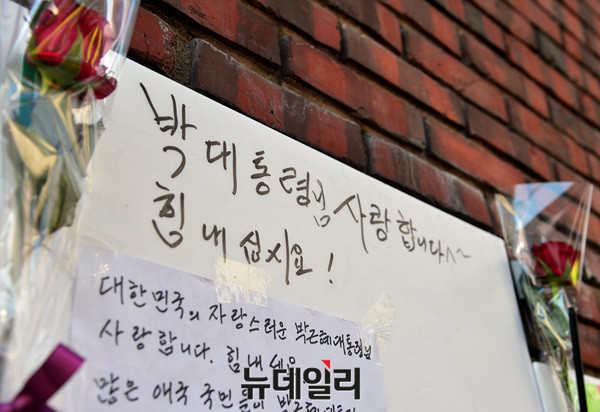 박 대통령님 사랑합니다^^~
힘 내 십시요!
대한민국의 자랑스러운 박근혜 대통령님
사랑합니다. 힘 내세요
많은 애국 국민들이 박근혜
뉴데일리